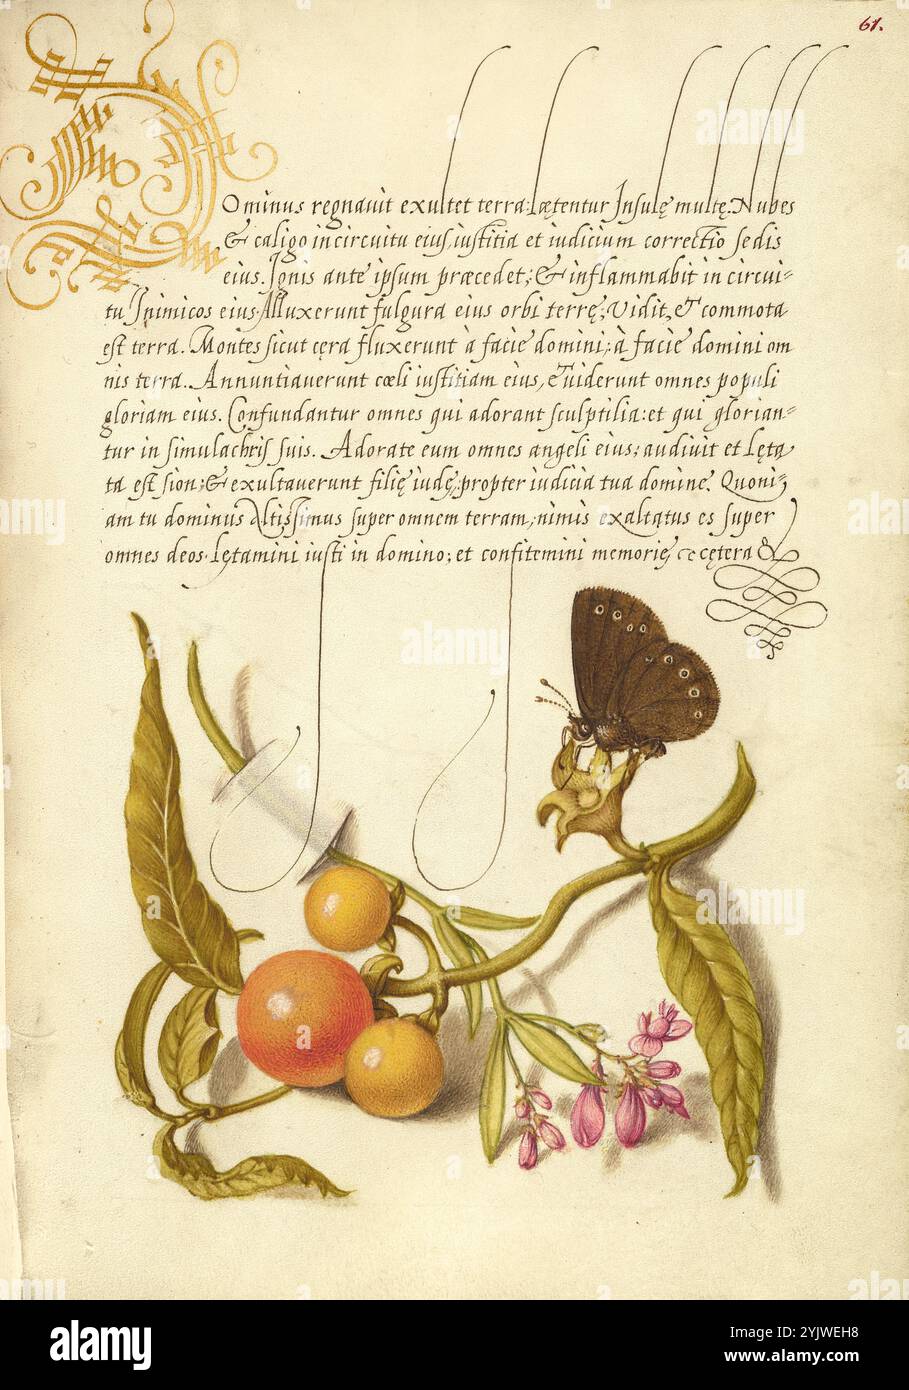 61.
DOminus regnavit exultet terra: Lætentur Insulę multę. Nubes
& caligo in circuitu eius, iustitia et iudicium correctio sedis
eius. Ignis ante ipsum præcedet; & inflammabit in circui-
tu Inimicos eius. Alluxerunt fulgura eius orbi terrę; Vidit, & commota
est terra. Montes sicut cęra fluxerunt à facie domini; à facie domini om
nis terra. Annuntiaverunt cœli iustitiam eius, & viderunt omnes populi
gloriam eius. Confundantur omnes qui adorant sculptilia: et qui glorian-
tur in simulachris suis. Adorate eum omnes angeli eius; audiuit et lęta
ta est sion; & exultaverunt filię iudę, propter iudicia tua domine. Quoni-
am tu dominus Altissimus super omnem terram, nimis exaltatus es super
omnes deos. Lętamini iusti in domino; et confitemini memorię et cętera &
alamy
alamy
alamy
alamy
alamy
Image ID: 2YJWEH8
www.alamy.com